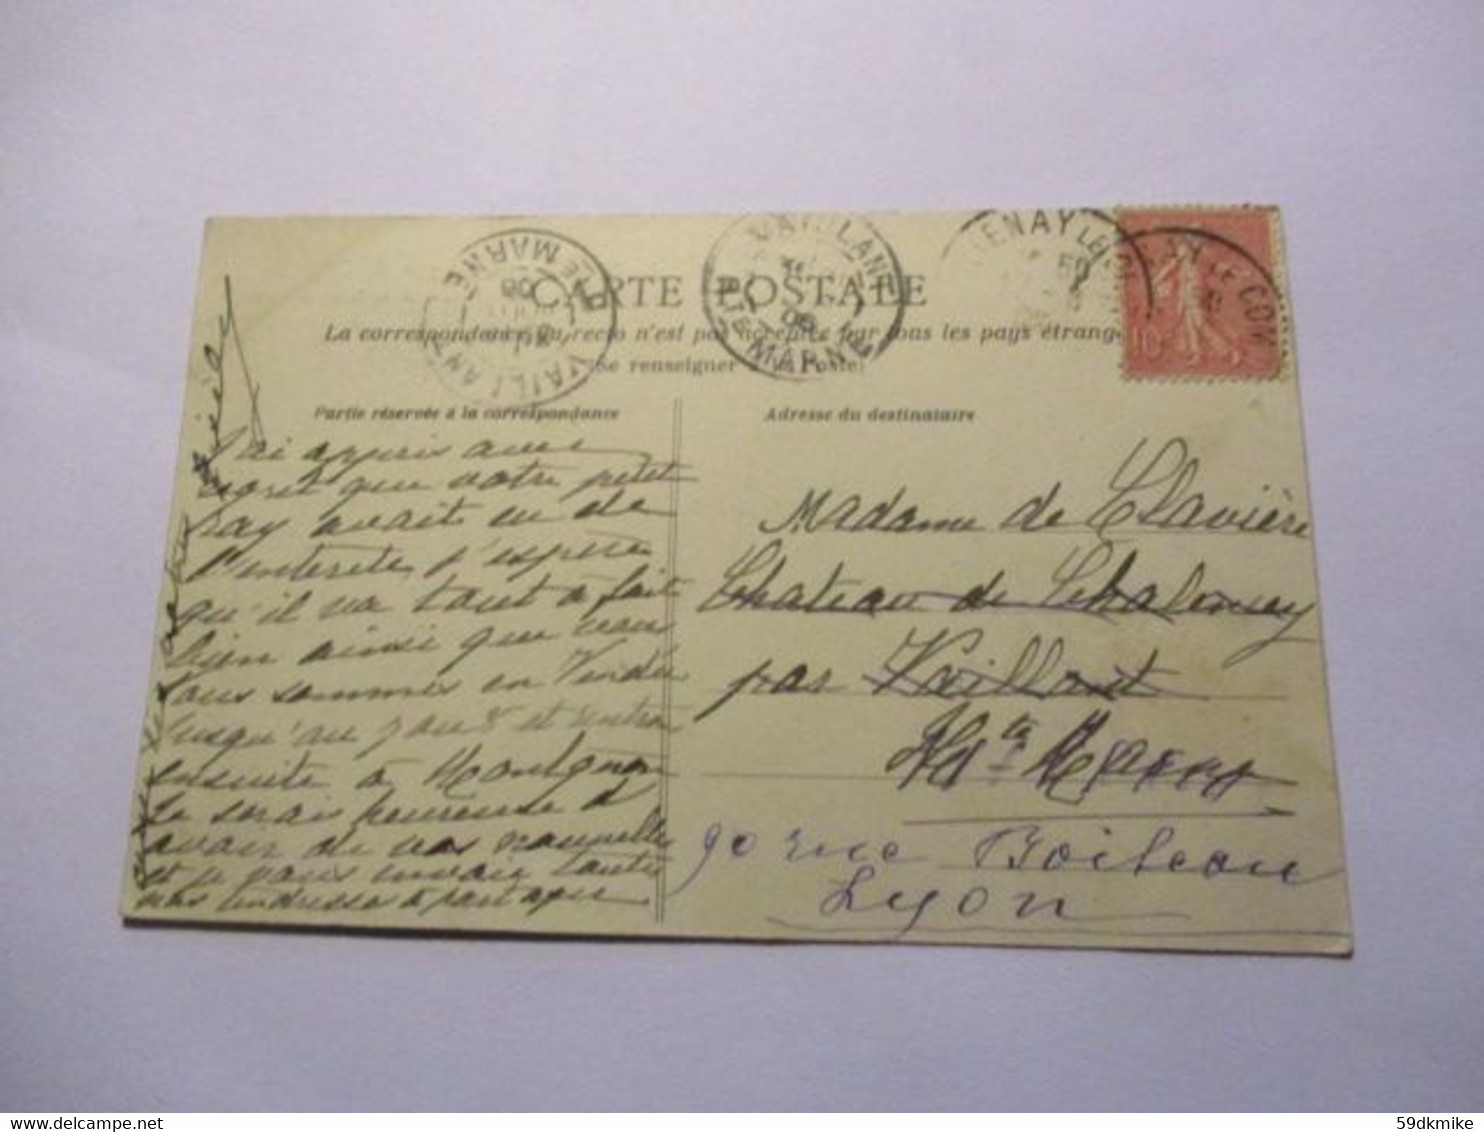 CARTE POSTALE
La correspondance au recto n'est pas acceptée par tous les pays étrang
(Se renseigner à la Poste)
Partie réservée à la correspondance
Adresse du destinataire
VAILLANT
HTE MARNE
06
VAILLANT
HTE MARNE
06
ENAY LE COM
10
J'ai appris avec
regret que votre petit
Guy avait eu de
l'enterite j'espère
qu'il va tout à fait
bien ainsi que vous
Nous sommes en Vendée
jusqu'au 7 ou 8 et rentrons
ensuite à
Je serais heureuse d'
avoir de vos nouvelles
et je vous envoie toutes
nos tendresses à partager
Madame de Clavière
Chateau de Chalancey
par Vaillant
Hte Marne
90 rue Boileau
Lyon
59dkmike